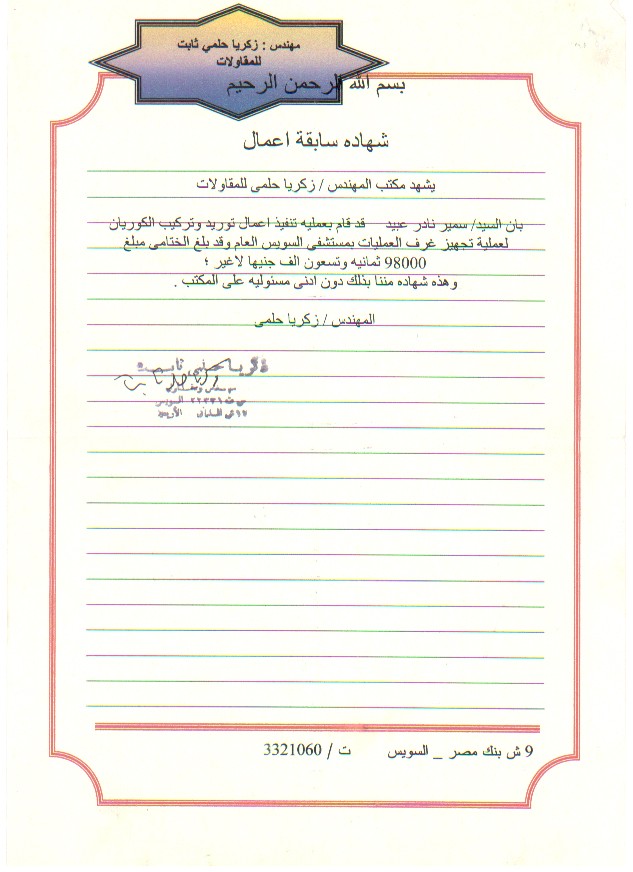 مهندس : زكريا حلمي ثابت
للمقاولات
بسم الله الرحمن الرحيم
شهاده سابقة اعمال
يشهد مكتب المهندس / زكريا حلمى للمقاولات
بان السيد/ سمير نادر عبيد قد قام بعمليه تنفيذ اعمال توريد وتركيب الكوريان
لعملية تجهيز غرف العمليات بمستشفى السويس العام وقد بلغ الختامى مبلغ
98000 ثمانيه وتسعون الف جنيها لاغير ؛
وهذه شهاده مننا بذلك دون ادنى مسئوليه على المكتب .
المهندس / زكريا حلمى
زكريا حلمي ثابت
السويس
9 ش بنك مصر _ السويس ت / 3321060